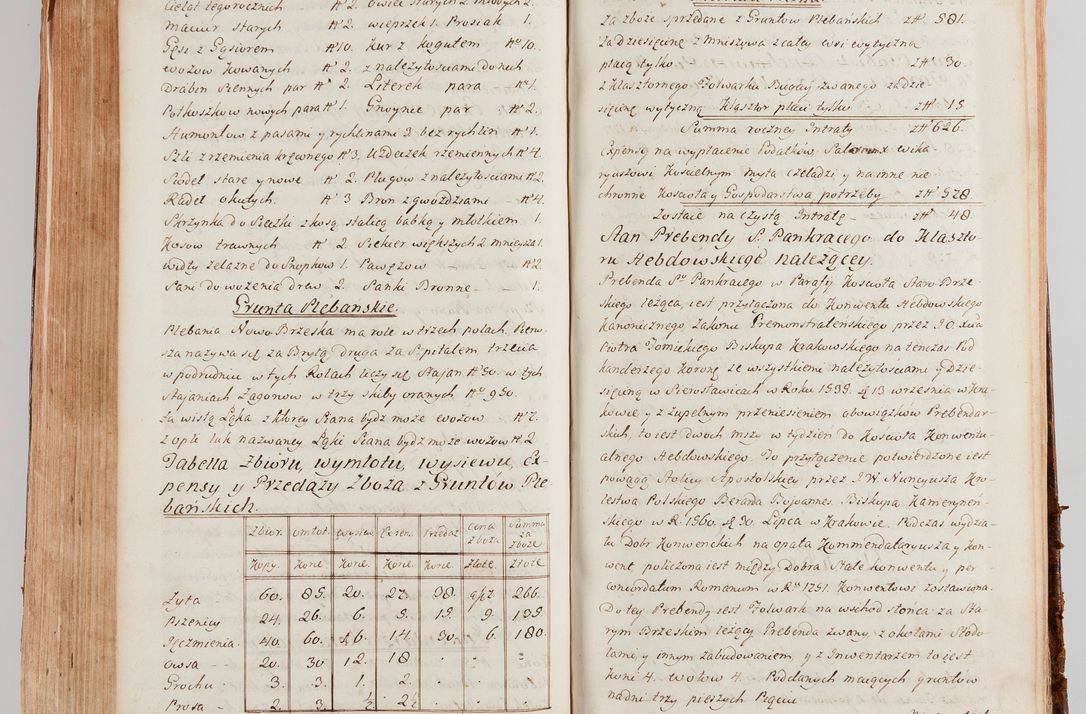 Cieląt tegorocznych № 2. owiec starych 2. młodych 2.
Maciur starych № 2. wieprzek 1. Prosiak 1.
Gęsi z Gąsiorem № 10. Kur z kogutem № 10.
wozow kowanych № 2. z należytościami do nich
Drabin Siennych par № 2. Literek para № 1.
Potkoszkow nowych para № 1. Gnoynic par № 2.
Humontow z pasami y rychlinami 3 bez rychlin № 1.
Szli z rzemienia kręconego № 3. Uzdeczek rzemiennych № 4.
Siodeł stare y nowe № 2. Pługow z należytościami № 2.
Radeł okutych. № 3 Bron z gwozdziami № 4.
Skrzynka do Sieczki z kosą stalicą babką y młotkiem 1.
Kosow trawnych № 2. Siekier większych 2. mnieysza 1.
widły żelazne do Snopkow 1. Pawęzow № 2.
Sani do wożenia drew 2. Sanki Bronne 1.
Grunta Plebańskie.
Plebania Nowo Brzeska ma role w trzech polach. Pierw-
sza nazywa się za Brytą druga za Szpitalem trzecia
w podrudniu w tych Rolach liczy się Stajan № 90. w tych
Stajaniach Zagonow w trzy skiby oranych № 930.
za wisłą Łąka z ktorey Siana bydz może wozow № 7.
z opti tak nazwaney Łąki Siana bydz może wozow № 2
Tabella Zbioru, wymłotu, wysiewu, Ex-
pensy y Przedaży Zboża z Gruntów Ple-
bańskich.
Zbior. omłot. wysiew. Expen. Przedaż Cena zboża Summa za zboże
Kopy. Korc. Korc. Korc. Korc. Złote. Złote
Żyta - 60. 85. 20. 27. 38. 7 266.
Pszenicy 24. 26. 6. 5. 15 9. 135.
Jęczmienia. 40. 60. 16. 14. 30. 6. 180.
Owsa - 20. 30 12. 18 . . .
Grochu - 3. 3. 1. 2. . . .
Prosa - 2. 3. ½ 2½ . . .
za zboże sprzedane z Gruntow Plebańskich zł№ 581.
za Dziesięcinę z Mniszowa z całey wsi wytyczna
płacą tylko zł№ 30.
z Klasztornego Folwarku Biegłoj zwanego za dzie-
sięcinę wytyczną Klasztor płaci tylko zł№ 15
Summa roczney Intraty zł№ 626.
Expensę na wypłacenie Podatków Salarium X wika-
ryuszowi Kościelnym myta czeladzi y na inne nie
chronne Kościoła y Gospodarstwa potrzeby zł№ 578.
zostaie na czystą Intratę zł№ 48.
Stan Prebendy S. Pankracego do Klaszto-
ru Hebdowskiego należącey.
Prebenda Sgo Pankracego w Parafij Kościoła Staro Brze-
skiego leżąca, iest przyłączona do Konwentu Hebdowskiego
Kanonicznego Zakonu Premonstrateńskiego przez J.O. xcia
Piotra Tomickiego Biskupa Krakowskiego na tenczas Pod
kanclerzego Koronę ze wszystkiemi należytościami y Dzie-
sięciną w Sierosławicach w Roku 1535. d 13 września w Kra-
kowie y z zupełnym przeniesieniem obowiązków Prebendar-
skich, to iest dwoch mszy w tydzien do Kościoła Konwentu-
alnego Hebdowskiego. To przyłączenie potwierdzone iest
powagą Stolicy Apostolskiey przez J.W. Nuncyusza Kro-
lestwa Polskiego Berarda Bojoannes. Biskupa Kameryneń-
skiego w R. 1560. d 30. Lipca w Krakowie. Podczas wydzia-
łu Dobr Konwenckich na opata Kommendataryusza y Kon-
went policzona iest między Dobra Stałe konwentu y per
concordatum Romanum w Rku 1751. Konwentowi zostawiona.
Do tey Prebendy iest Folwark na wschod słońca za Sta-
rym Brzeskim leżący Prebenda zwany z okołami Stodo-
łami, y innym zabudowaniem y z Inwentarzem to iest
Koni 4. wołow 4. Poddanych maiących gruntow
nadni trzy pieszych Pięciu